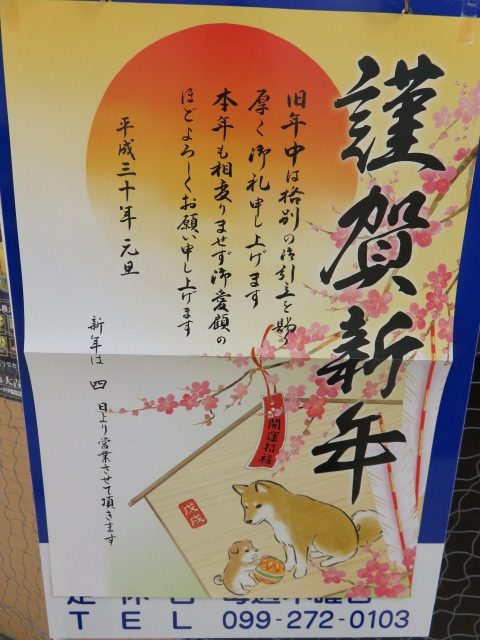 謹賀新年
旧年中は格別の御引立を賜り
厚く御礼申し上げます
本年も相変りませず御愛顧の
ほどよろしくお願い申し上げます
平成三十年 元旦
新年は 四 日より営業させて頂きます
開運招福
戊戌
TEL 099-272-0103